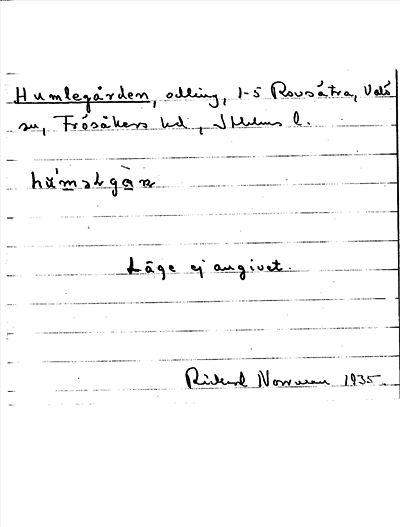 Humlegården, odling, 1-5 Rovsätra, Valö
sn, Frösåkers hd, Sthlms l.
Läge ej angivet.
Rickard Norrman 1935.